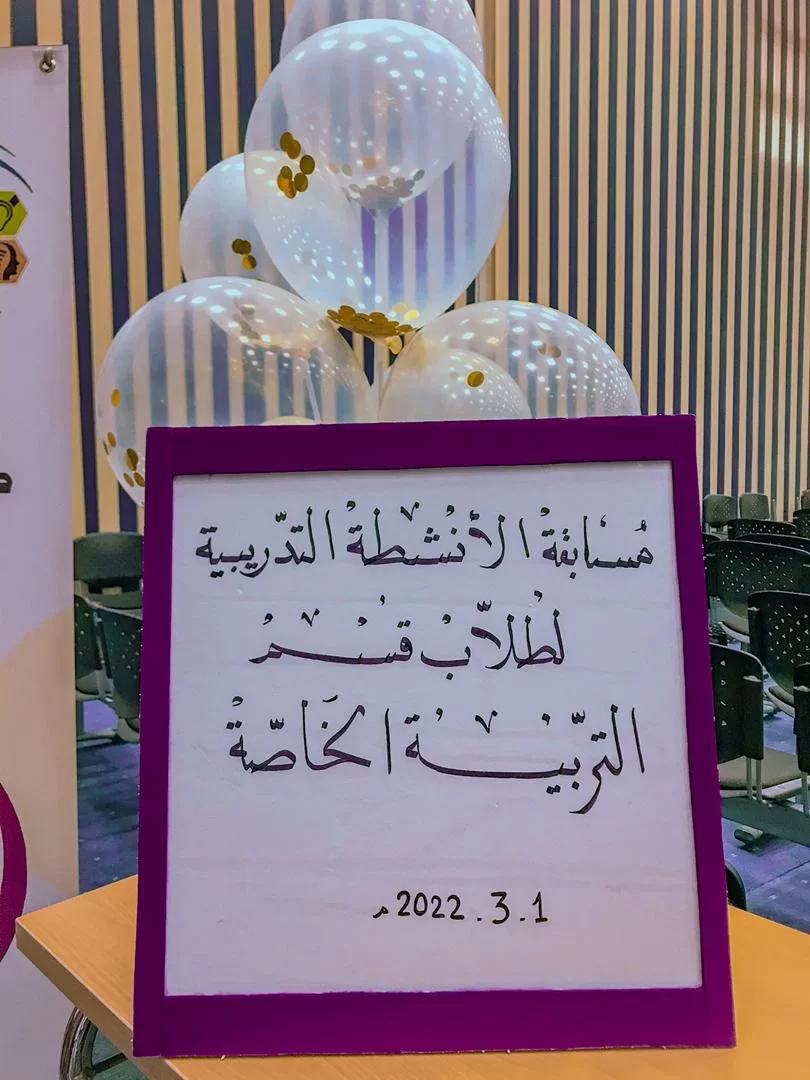 مُسابقةْ الأنْشطةْ التدّريبية
لطُلاّب قسْم
التربّيْة الخَاصّةْ
2022.3.1م